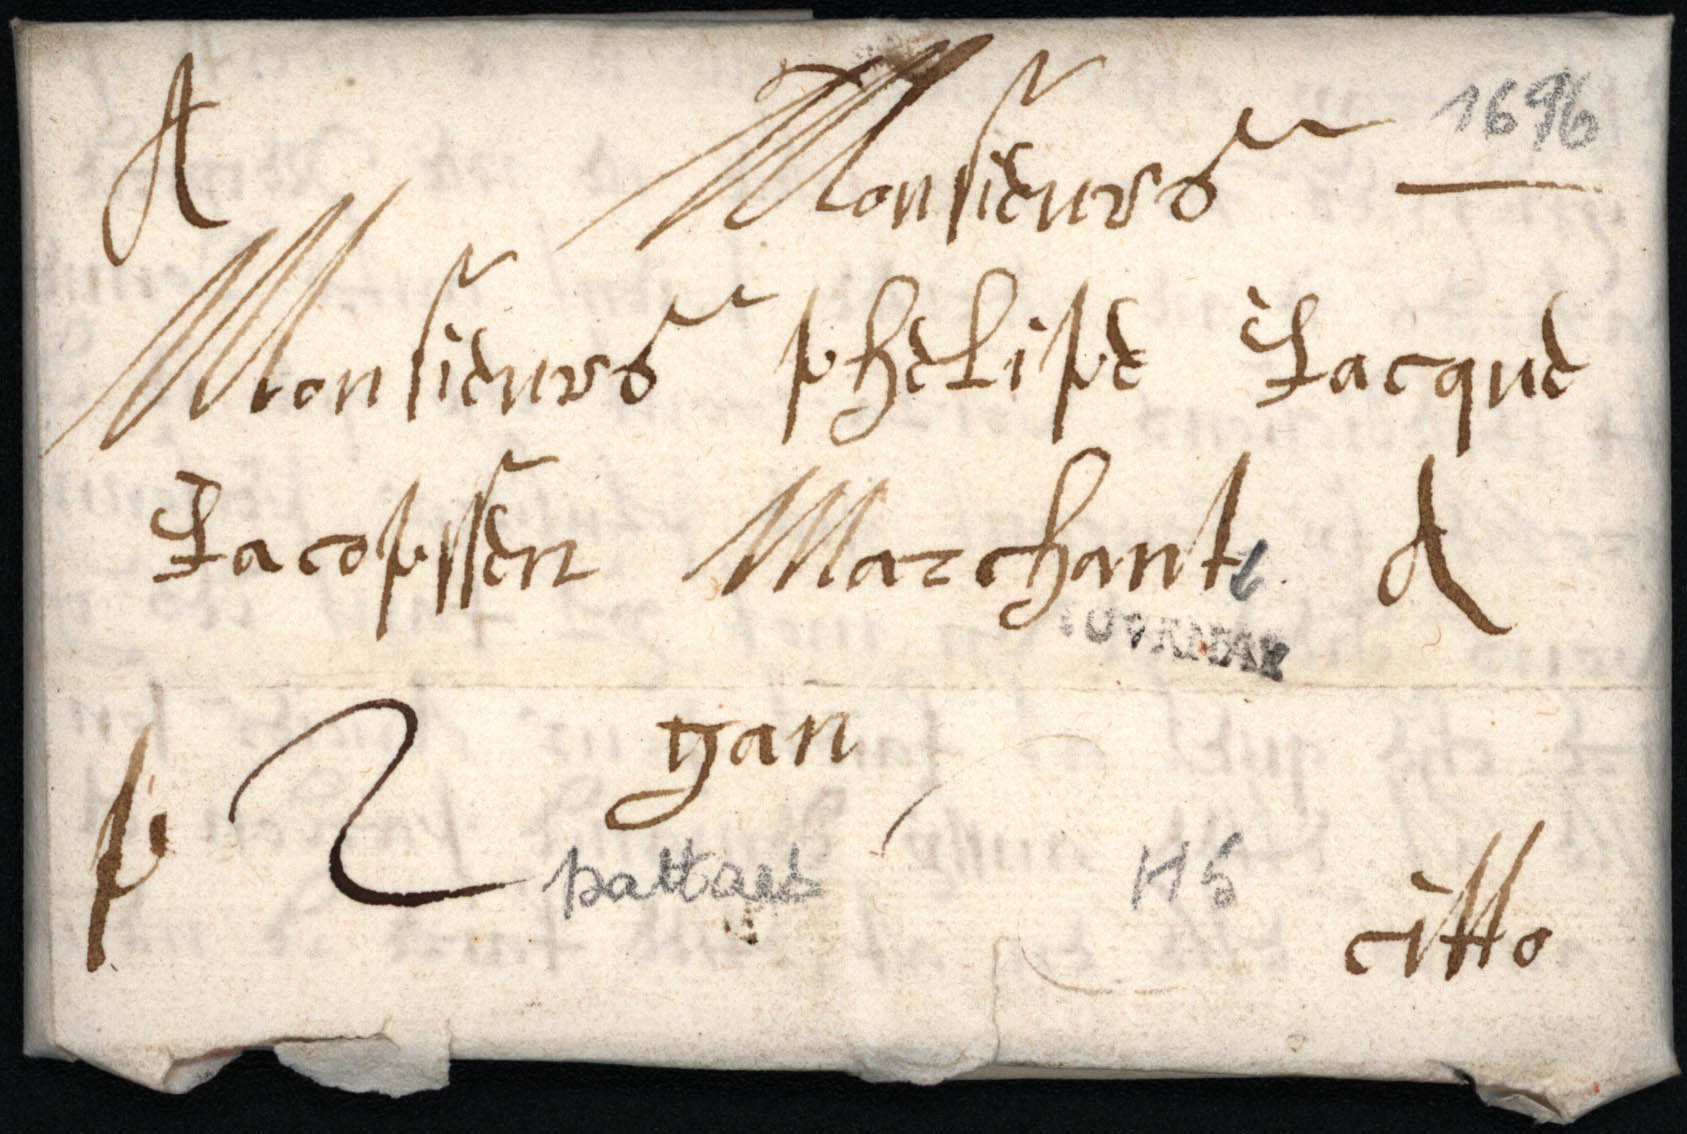 A Monsieurs 1696
Monsieurs phelipe Jacque
Jacopssen Marchant A
gan
p 2 pattars H6
citto